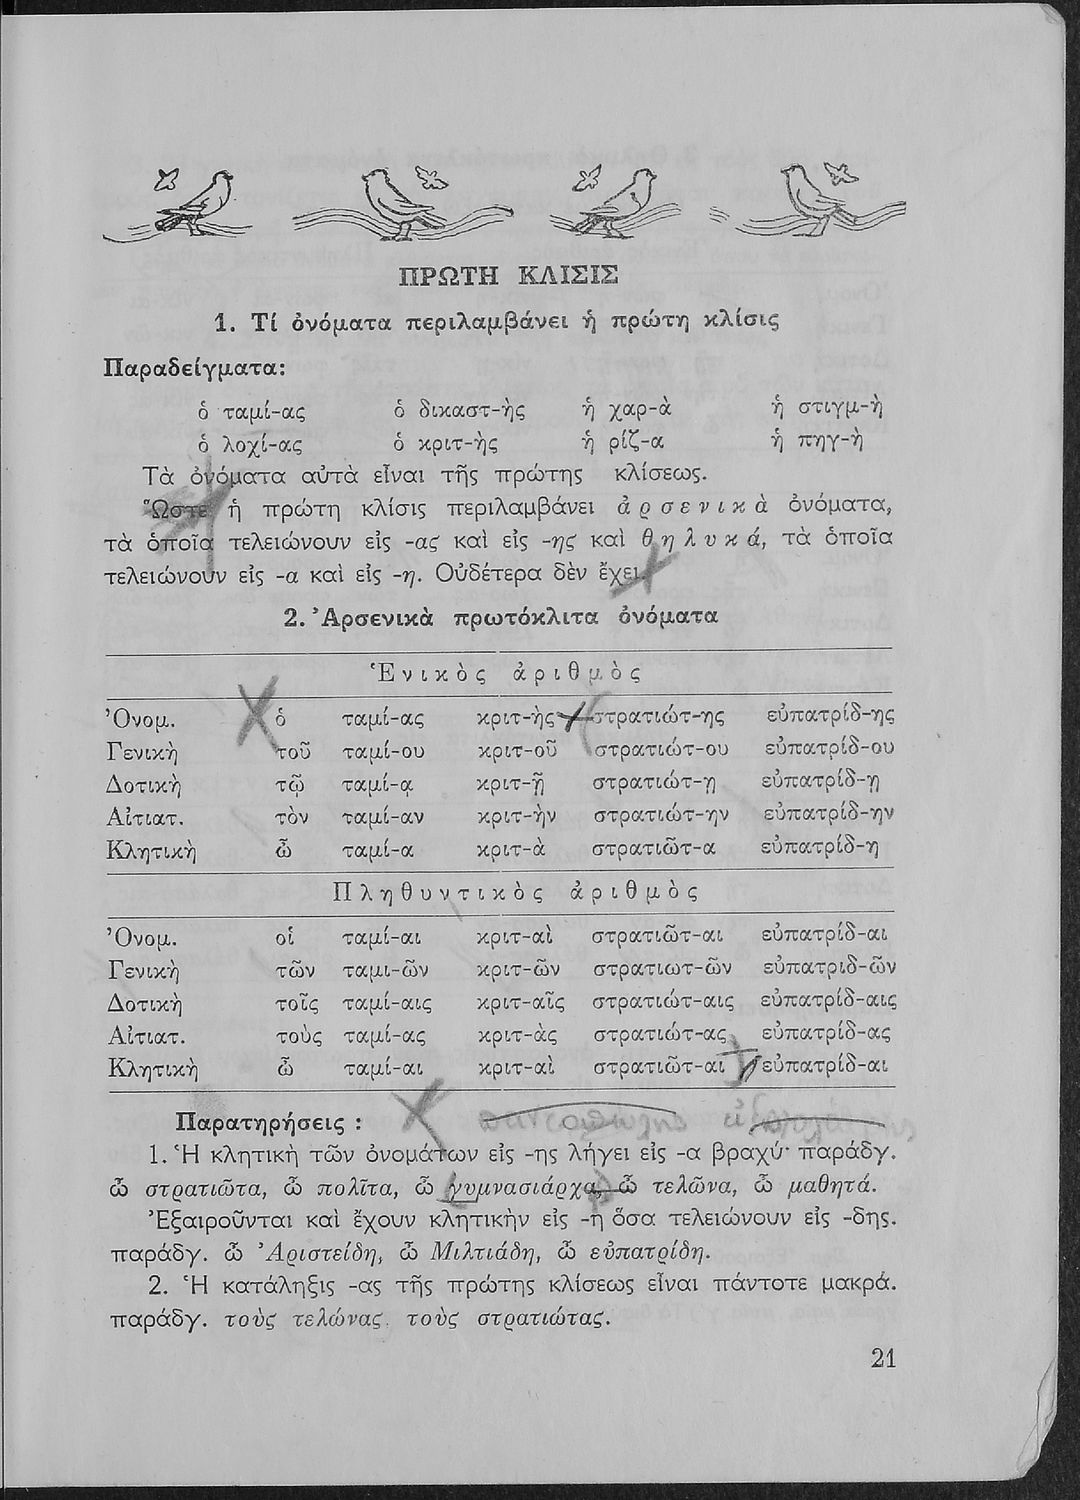 ΠΡΩΤΗ ΚΛΙΣΙΣ
1. Τί ὀνόματα περιλαμβάνει ἡ πρώτη κλίσις
Παραδείγματα:
ὁ ταμί-ας ὁ δικαστ-ὴς ἡ χαρ-ὰ ἡ στιγμ-ὴ
ὁ λοχί-ας ὁ κριτ-ὴς ἡ ρίζ-α ἡ πηγ-ὴ
Τὰ ὀνόματα αὐτὰ εἶναι τῆς πρώτης κλίσεως.
Ὥστε ἡ πρώτη κλίσις περιλαμβάνει ἀρσενικὰ ὀνόματα,
τὰ ὁποῖα τελειώνουν εἰς -ας καὶ εἰς -ης καὶ θηλυκά, τὰ ὁποῖα
τελειώνουν εἰς -α καὶ εἰς -η. Οὐδέτερα δὲν ἔχει
2. Ἀρσενικὰ πρωτόκλιτα ὀνόματα
Ἑνικὸς ἀριθμὸς
Ὀνομ. ὁ ταμί-ας κριτ-ὴς στρατιώτ-ης εὐπατρίδ-ης
Γενικὴ τοῦ ταμί-ου κριτ-οῦ στρατιώτ-ου εὐπατρίδ-ου
Δοτικὴ τῷ ταμί-ᾳ κριτ-ῇ στρατιώτ-ῃ εὐπατρίδ-ῃ
Αἰτιατ. τὸν ταμί-αν κριτ-ὴν στρατιώτ-ην εὐπατρίδ-ην
Κλητικὴ ὦ ταμί-α κριτ-ὰ στρατιῶτ-α εὐπατρίδ-η
Πληθυντικὸς ἀριθμὸς
Ὀνομ. οἱ ταμί-αι κριτ-αὶ στρατιῶτ-αι εὐπατρίδ-αι
Γενικὴ τῶν ταμι-ῶν κριτ-ῶν στρατιωτ-ῶν εὐπατριδ-ῶν
Δοτικὴ τοῖς ταμί-αις κριτ-αῖς στρατιώτ-αις εὐπατρίδ-αις
Αἰτιατ. τοὺς ταμί-ας κριτ-ὰς στρατιώτ-ας εὐπατρίδ-ας
Κλητικὴ ὦ ταμί-αι κριτ-αὶ στρατιῶτ-αι εὐπατρίδ-αι
Παρατηρήσεις :
1. Ἡ κλητικὴ τῶν ὀνομάτων εἰς -ης λήγει εἰς -α βραχύ· παράδγ.
ὦ στρατιῶτα, ὦ πολῖτα, ὦ γυμνασιάρχα, ὦ τελῶνα, ὦ μαθητά.
Ἐξαιροῦνται καὶ ἔχουν κλητικὴν εἰς -η ὅσα τελειώνουν εἰς -δης.
παράδγ. ὦ Ἀριστείδη, ὦ Μιλτιάδη, ὦ εὐπατρίδη.
2. Ἡ κατάληξις -ας τῆς πρώτης κλίσεως εἶναι πάντοτε μακρά.
παράδγ. τοὺς τελώνας. τοὺς στρατιώτας.
21